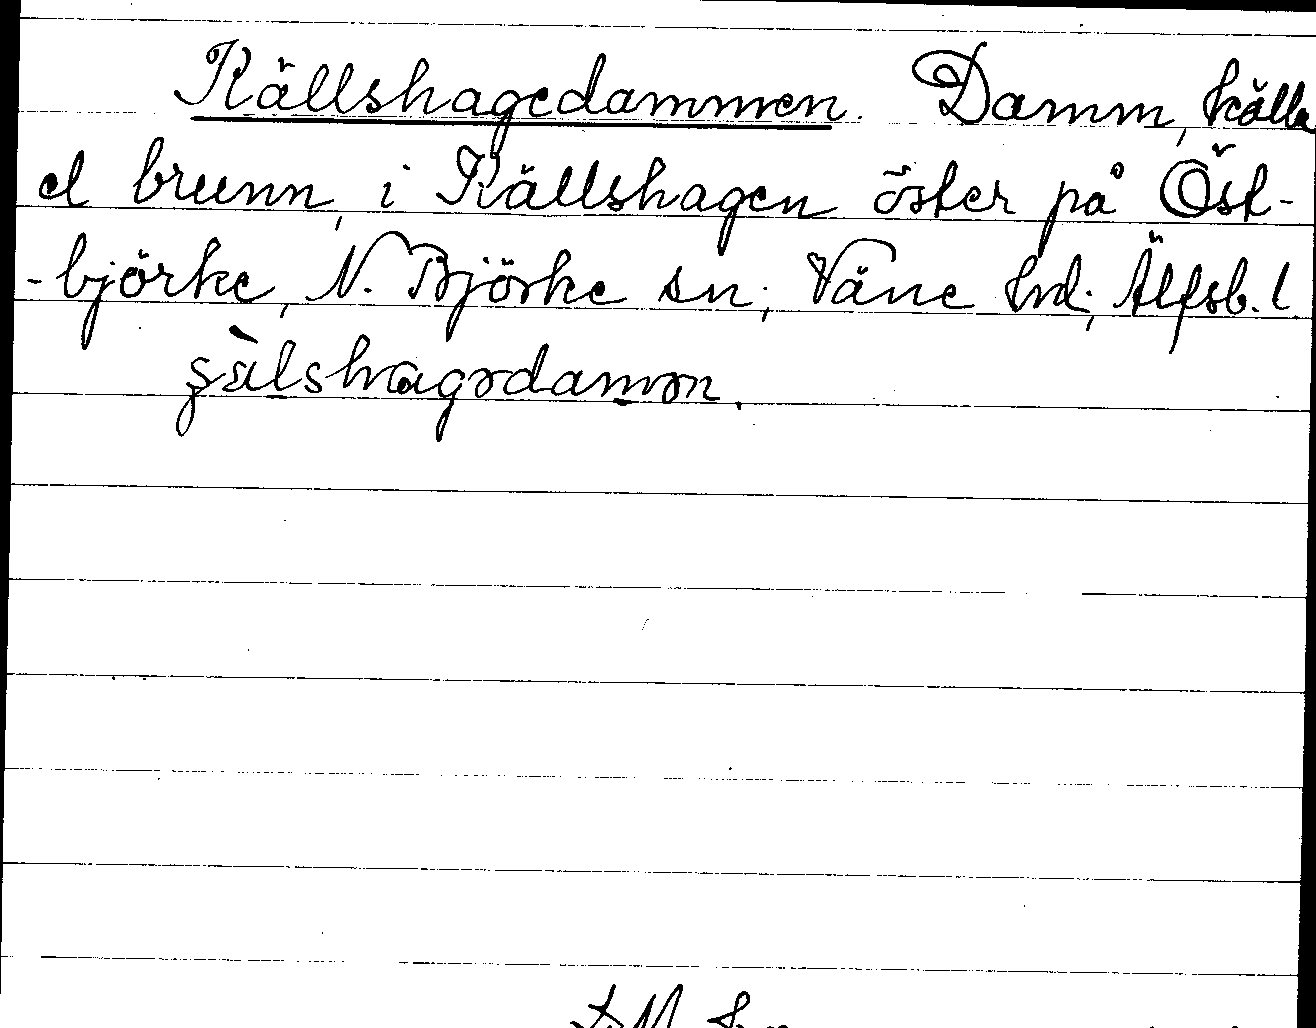 Källshagedammen. Damm, källa
el brunn, i Källshagen öster på Öst-
-björke, N. Björke sn; Väne hrd; Älfsb. l.